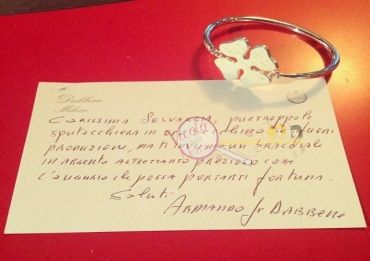 Dabbene
Milano
Carissima Selvaggia, purtroppo lo
sputacchiera in
produzione, ma ti invio un bracciale
in argento altrettanto prezioso con
l'augurio che possa portarti fortuna.
Saluti.
Armando Jr Dabbene